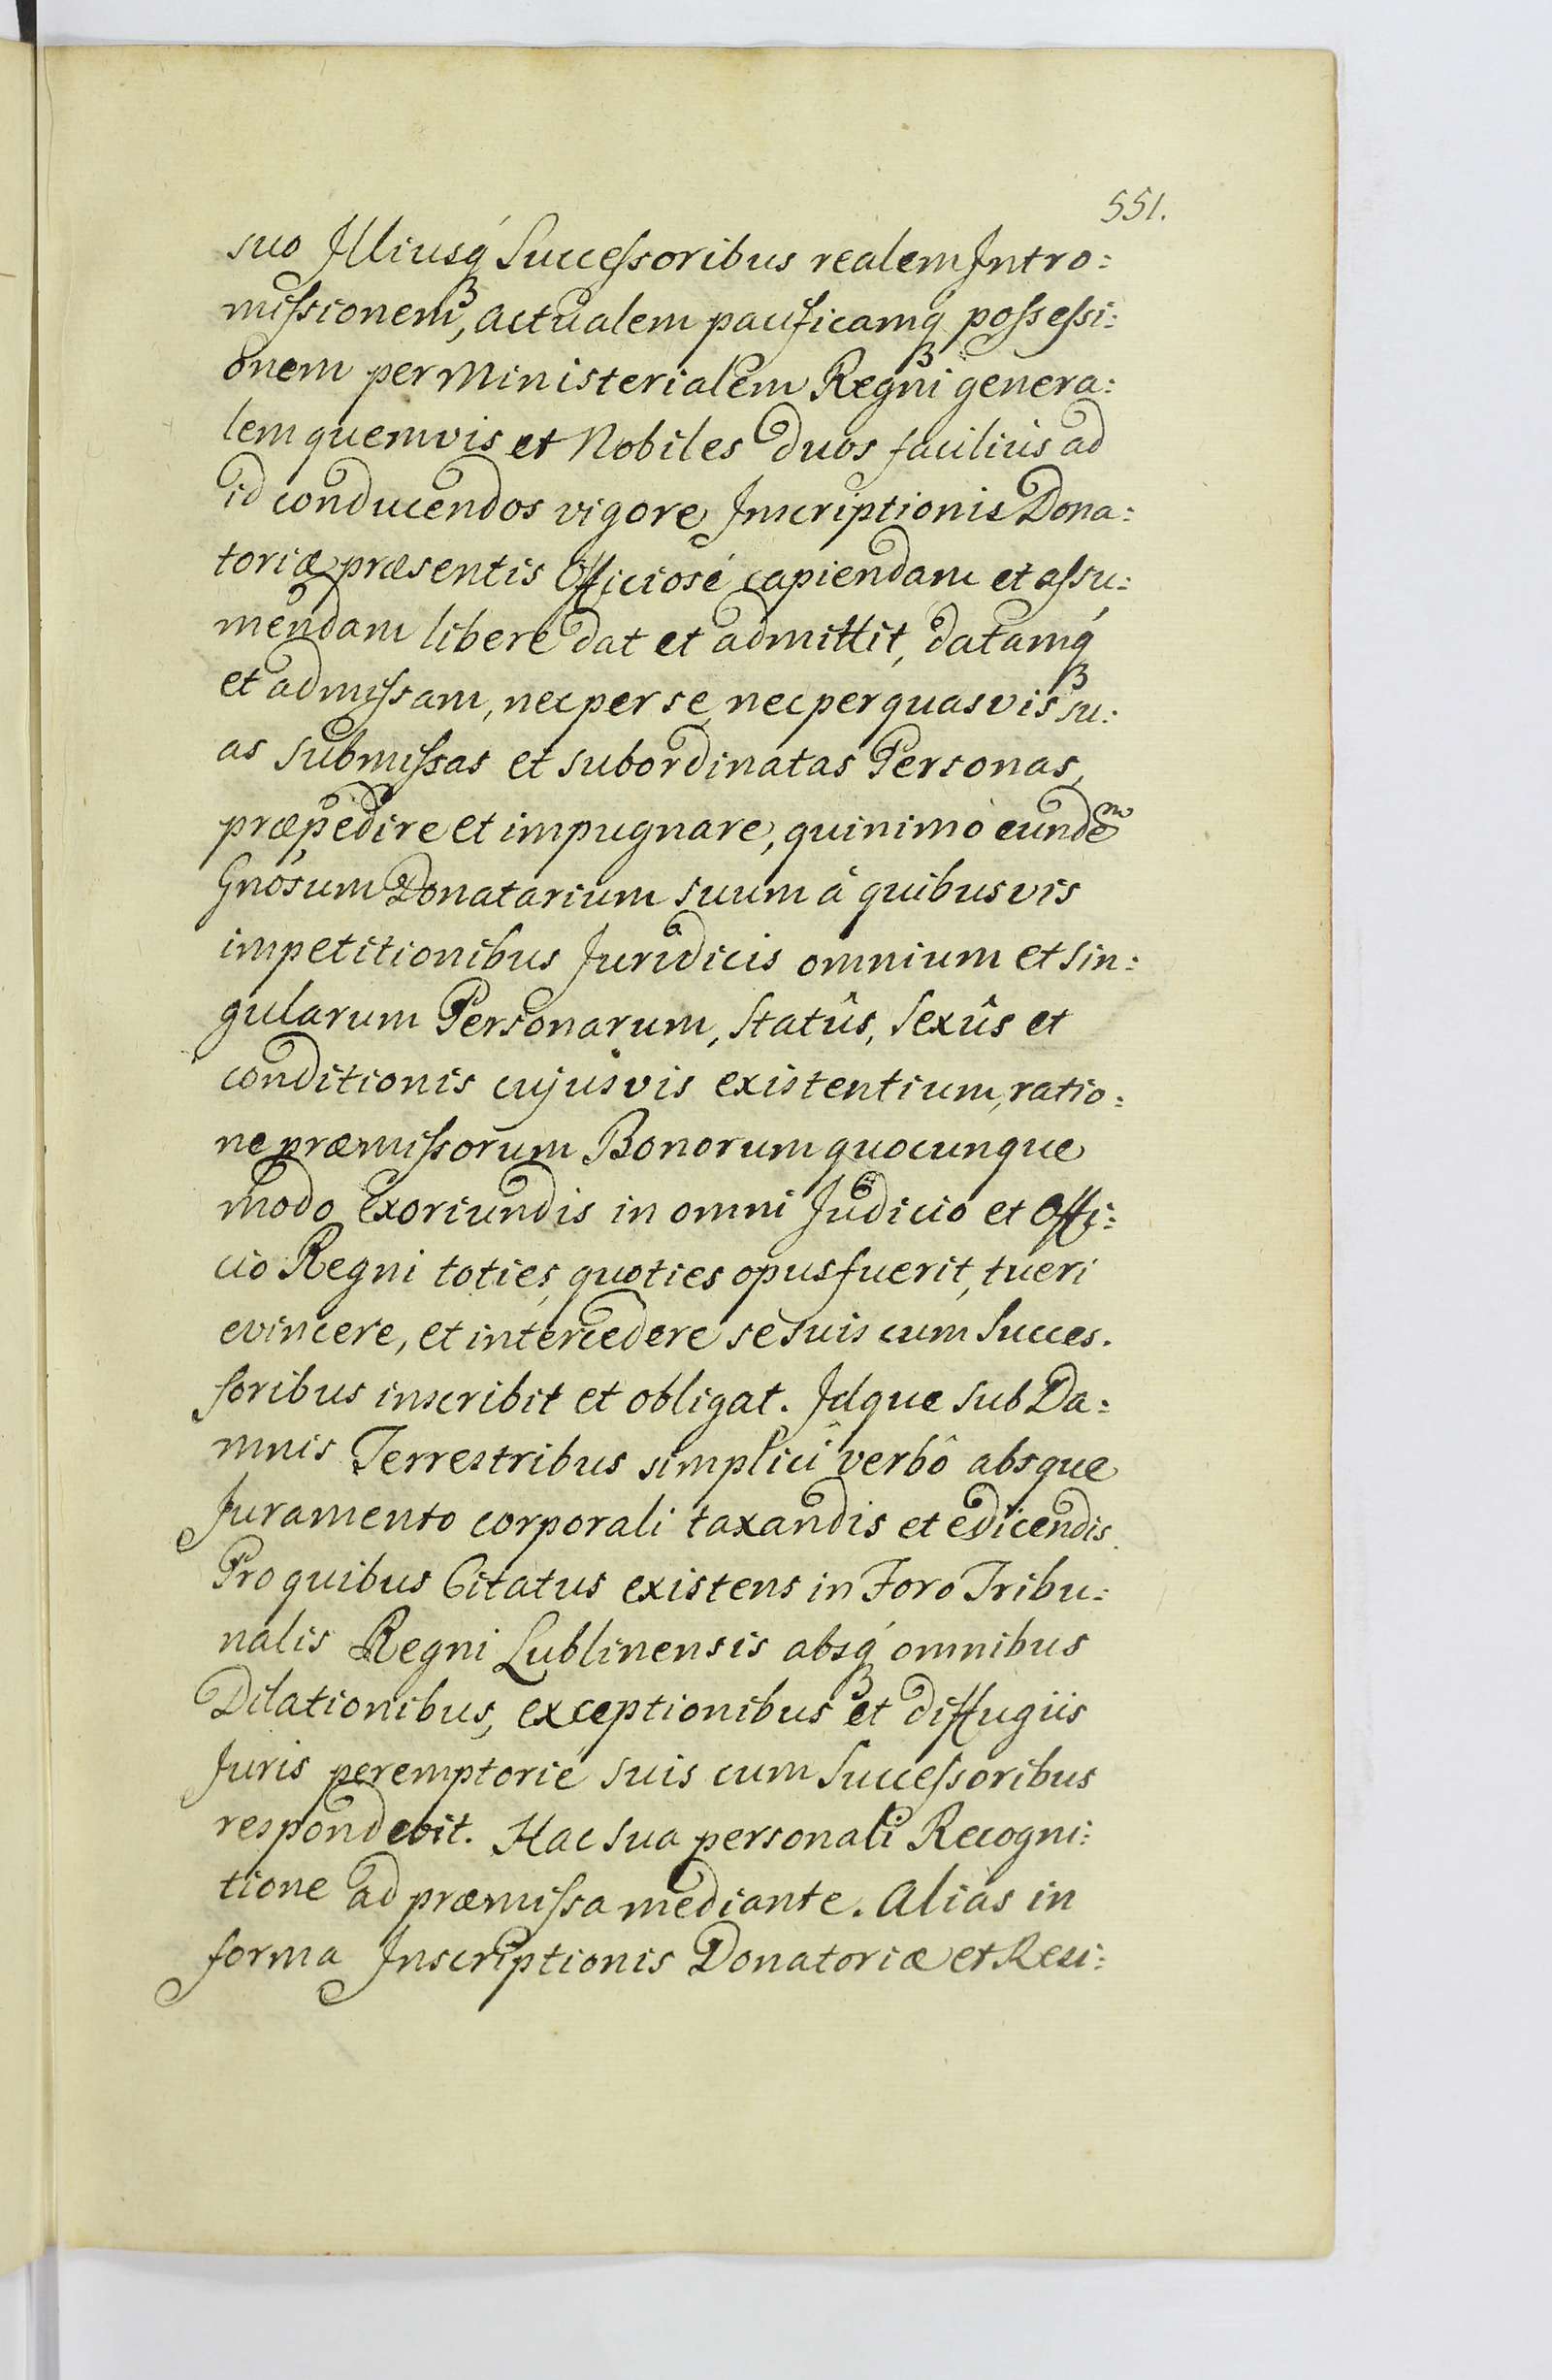 551.
suo Illiusq́ꝫ Successoribus realem Intro:
missionem, actualem pacificamq́ꝫ possessi:
onem per Ministerialem Regni genera:
lem quemvis et Nobiles duos facilius ad
id conducendos vigore Inscriptionis Dona:
toriæ præsentis Officiosé capiendam et assu:
mendam libere dat et admittit, datamq́ꝫ
et admissam, nec per se, nec per quasvis su:
as submissas et subordinatas Personas,
præpedire et impugnare, quinimò eundeᵐ
Gnósum Donatarium suum à quibusvis
impetitionibus Juridicis omnium et sin:
gularum Personarum, Statûs, Sexûs et
conditionis cujusvis existentium, ratio:
ne præmissorum Bonorum quocunque
modo exoriundis in omni Judicio et Offi:
cio Regni toties, quoties opus fuerit, tueri
evincere, et intercedere se suis cum Succes.
soribus inscribit et obligat. Idque sub Da:
mnis Terrestribus simplici verbô absque
Juramento corporali taxandis et edicendis.
Pro quibus Citatus existens in Foro Tribu:
nalis Regni Lublinensis absq́ꝫ omnibus
Dilationibus, exceptionibus et diffugiis
Juris peremptorié suis cum Successoribus
respondebit. Hac sua personali Recogni:
tione ad præmissa mediante. Aliàs in
forma Inscriptionis Donatoriæ et Resi: